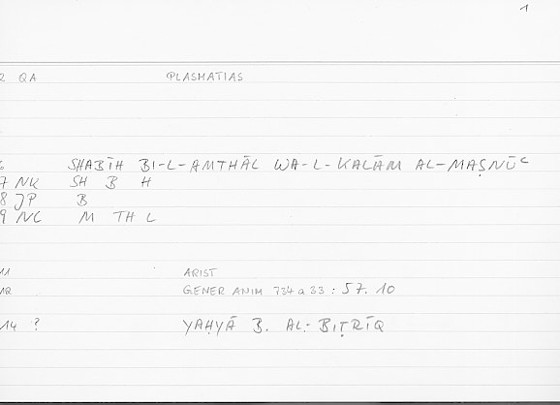 1
2 QA PLASMATIAS
6 SHABĪH BI-L-AMTHĀL WA-L-KALĀM AL-MAṢNŪʿ
7 NK SH B H
8 JP B
9 NC M TH L
11 ARIST
12 GENER ANIM 734 a 33 : 57. 10
14 ? YAḤYĀ B. AL-BIṬRĪQ